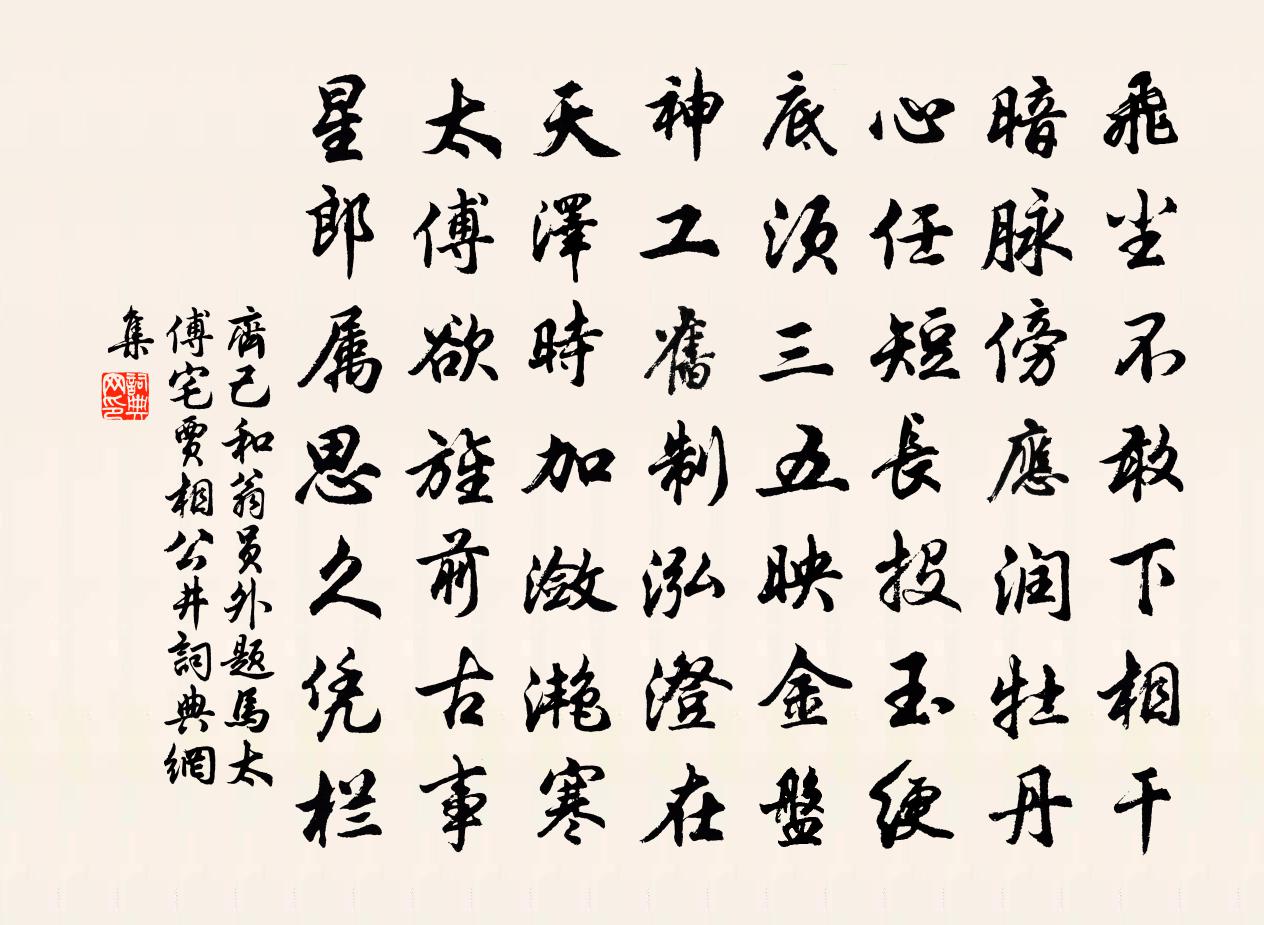 飛尘不敢下相干
暗脉傍應润牡丹
心任短長投玉绠
底须三五映金盤
神工舊制泓澄在
天澤時加潋滟寒
太傅欲旌前古事
星郎属思久凭栏
齊己和翁員外题馬太
傅宅賈相公井詞典網
集
詞典网印